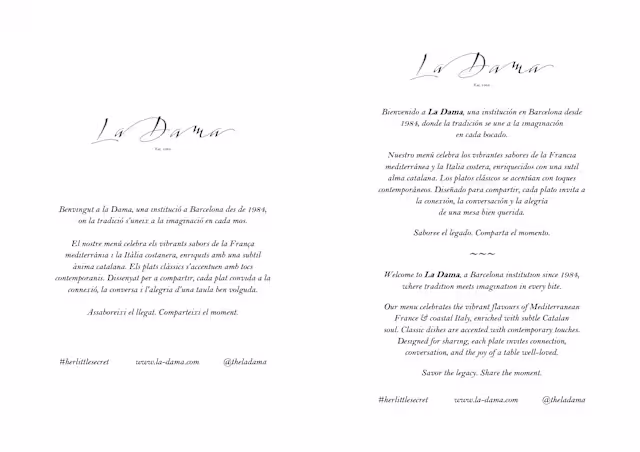 La Dama
Est. 1984
Benvingut a la Dama, una institució a Barcelona des de 1984,
on la tradició s'uneix a la imaginació en cada mos.
El nostre menú celebra els vibrants sabors de la França
mediterrània i la Itàlia costanera, enriquits amb una subtil
ànima catalana. Els plats clàssics s'accentuen amb tocs
contemporanis. Dissenyat per a compartir, cada plat convida a la
connexió, la conversa i l'alegria d'una taula ben volguda.
Assaboreixi el llegat. Comparteixi el moment.
#herlittlesecret www.la-dama.com @theladama
La Dama
Est. 1984
Bienvenido a La Dama, una institución en Barcelona desde
1984, donde la tradición se une a la imaginación
en cada bocado.
Nuestro menú celebra los vibrantes sabores de la Francia
mediterránea y la Italia costera, enriquecidos con una sutil
alma catalana. Los platos clásicos se acentúan con toques
contemporáneos. Diseñado para compartir, cada plato invita a
la conexión, la conversación y la alegría
de una mesa bien querida.
Saboree el legado. Comparta el momento.
~~~
Welcome to La Dama, a Barcelona institution since 1984,
where tradition meets imagination in every bite.
Our menu celebrates the vibrant flavours of Mediterranean
France & coastal Italy, enriched with subtle Catalan
soul. Classic dishes are accented with contemporary touches.
Designed for sharing, each plate invites connection,
conversation, and the joy of a table well-loved.
Savor the legacy. Share the moment.
#herlittlesecret www.la-dama.com @theladama